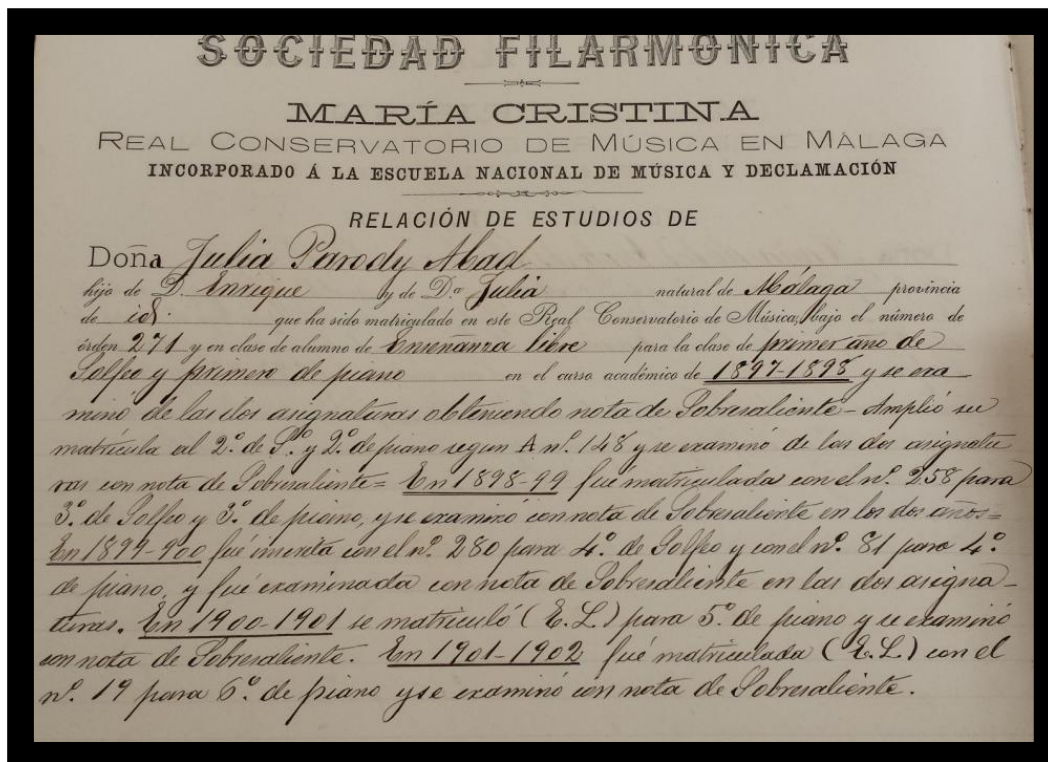 SOCIEDAD FILARMÓNICA
MARÍA CRISTINA
REAL CONSERVATORIO DE MÚSICA EN MÁLAGA
INCORPORADO Á LA ESCUELA NACIONAL DE MÚSICA Y DECLAMACIÓN
RELACIÓN DE ESTUDIOS DE
Doña Julia Parody Abad
hijo de D. Enrique y de D.ª Julia natural de Málaga provincia
de id. que ha sido matriculado en este Real Conservatorio de Música, bajo el número de
órden 271 y en clase de alumno de Enseñanza libre para la clase de primer año de
Solfeo y primero de piano en el curso académico de 1897-1898 y se exa
minó de las dos asignaturas obteniendo nota de Sobresaliente - Amplió su
matrícula al 2º. de S.º y 2º. de piano segun A nº. 148 y se examinó de las dos asignatu
ras con nota de Sobresaliente = En 1898-99 fué matriculada con el nº. 258 para
3º. de Solfeo y 3º. de piano, y se examinó con nota de Sobresaliente en los dos años =
En 1899-900 fué inscrita con el nº. 280 para 4º. de Solfeo y con el nº. 81 para 4º.
de piano, y fué examinada con nota de Sobresaliente en las dos asigna-
turas. En 1900-1901 se matriculó (E. L.) para 5º. de piano y se examinó
con nota de Sobresaliente. En 1901-1902 fué matriculada (E. L.) con el
nº. 19 para 6º. de piano y se examinó con nota de Sobresaliente.